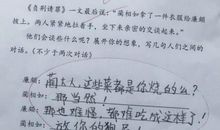 《负荆请罪》一文最后说："蔺相如拿了一件衣服给廉颇
披上，两人紧紧地拉着手，坐下来亲密的交谈起来。"
他们会谈些什么呢？展开你的想象，写几句人们之间的
对话。（不少于两次对话）
廉颇：蔺大人，这些菜都是你烧的么？
蔺相如：那当然！
廉颇：也难怪，都难吃成这样了！
蔺相如：放你的狗屁！